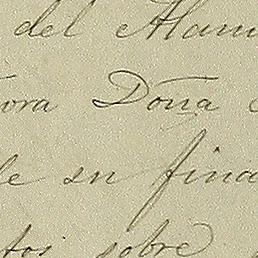 del Alam
ora Doña
de su fina
tos sobre